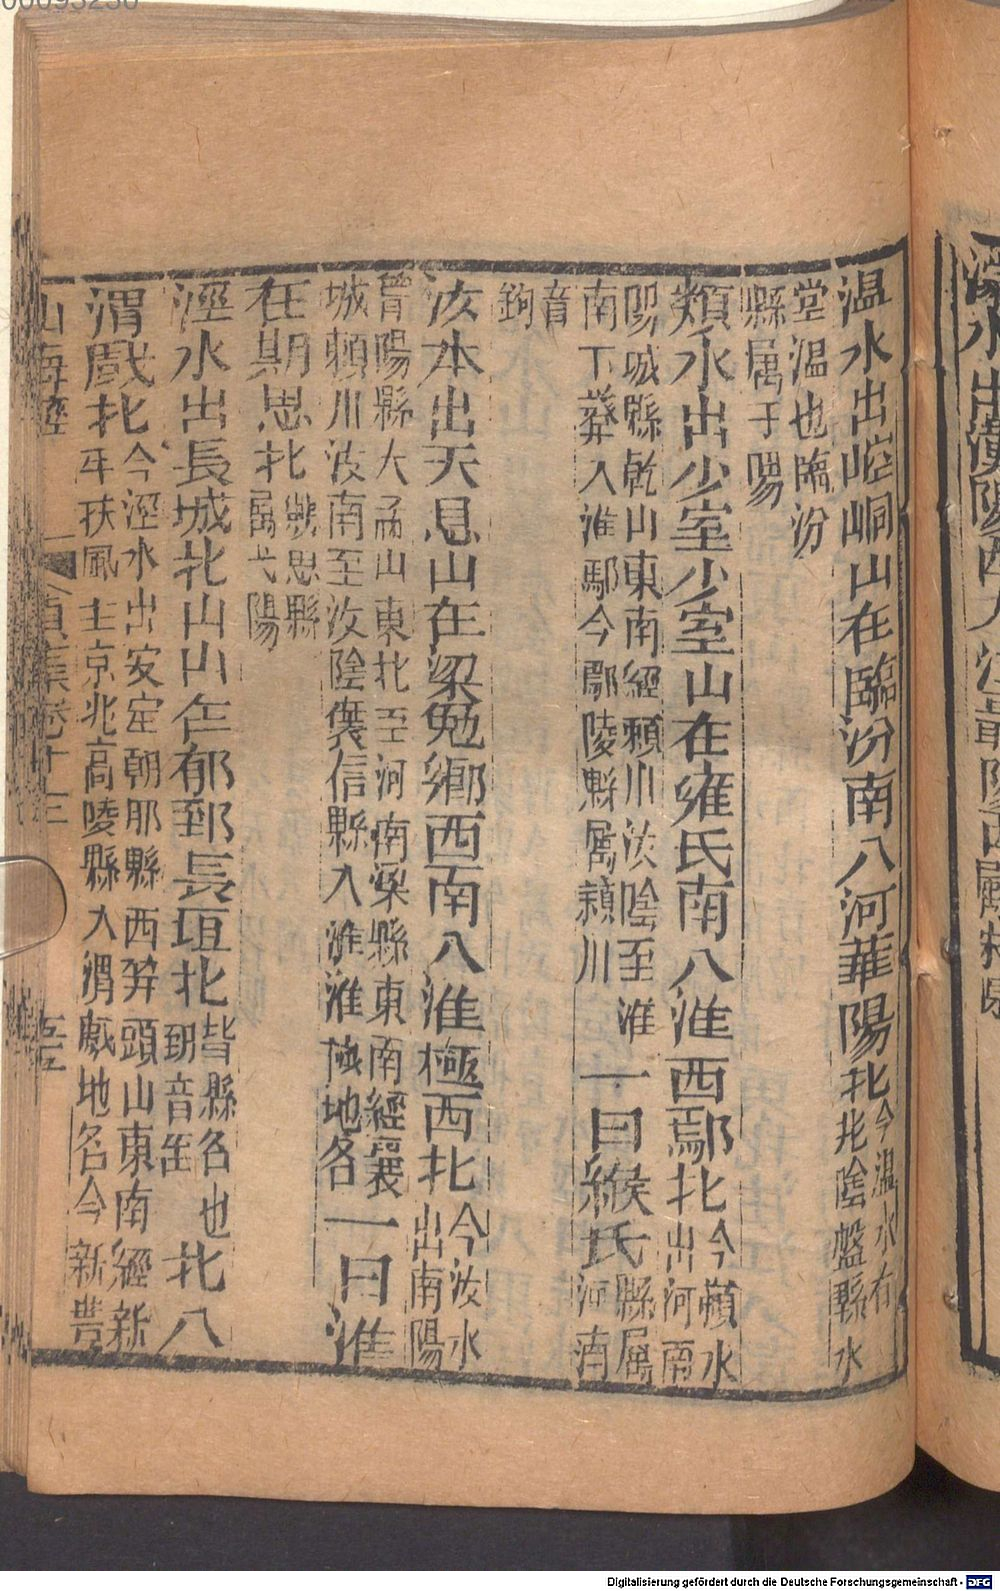 温水出崆峒山在臨汾南入河華陽北今温水右北陰盤縣水
堂温也臨汾
縣属于陽
頴水出少室少室山在雍氏南入淮西鄢北今頴水出河南
陽城縣乾山東南經頴川汝陰至淮一曰緱氏縣属
南下蔡入淮鄢今鄢陵縣属頴川河南
音
鉤
汝本出天息山在梁勉鄉西南入淮極西北今汝水出南陽
魯陽縣大盂山東北至河南梁縣東南經襄
城頴川汝南至汝陰褒信縣入淮淮極地名一曰淮
在期思北期思縣属弋陽
涇水出長城北山山在郁郅長垣北皆縣名也郅音䦉北入
渭戲北今涇水出安定朝那縣西笄頭山東南經新
平扶風主京兆高陵縣入渭戲地名今新豊
山海經 貞集卷十三 五